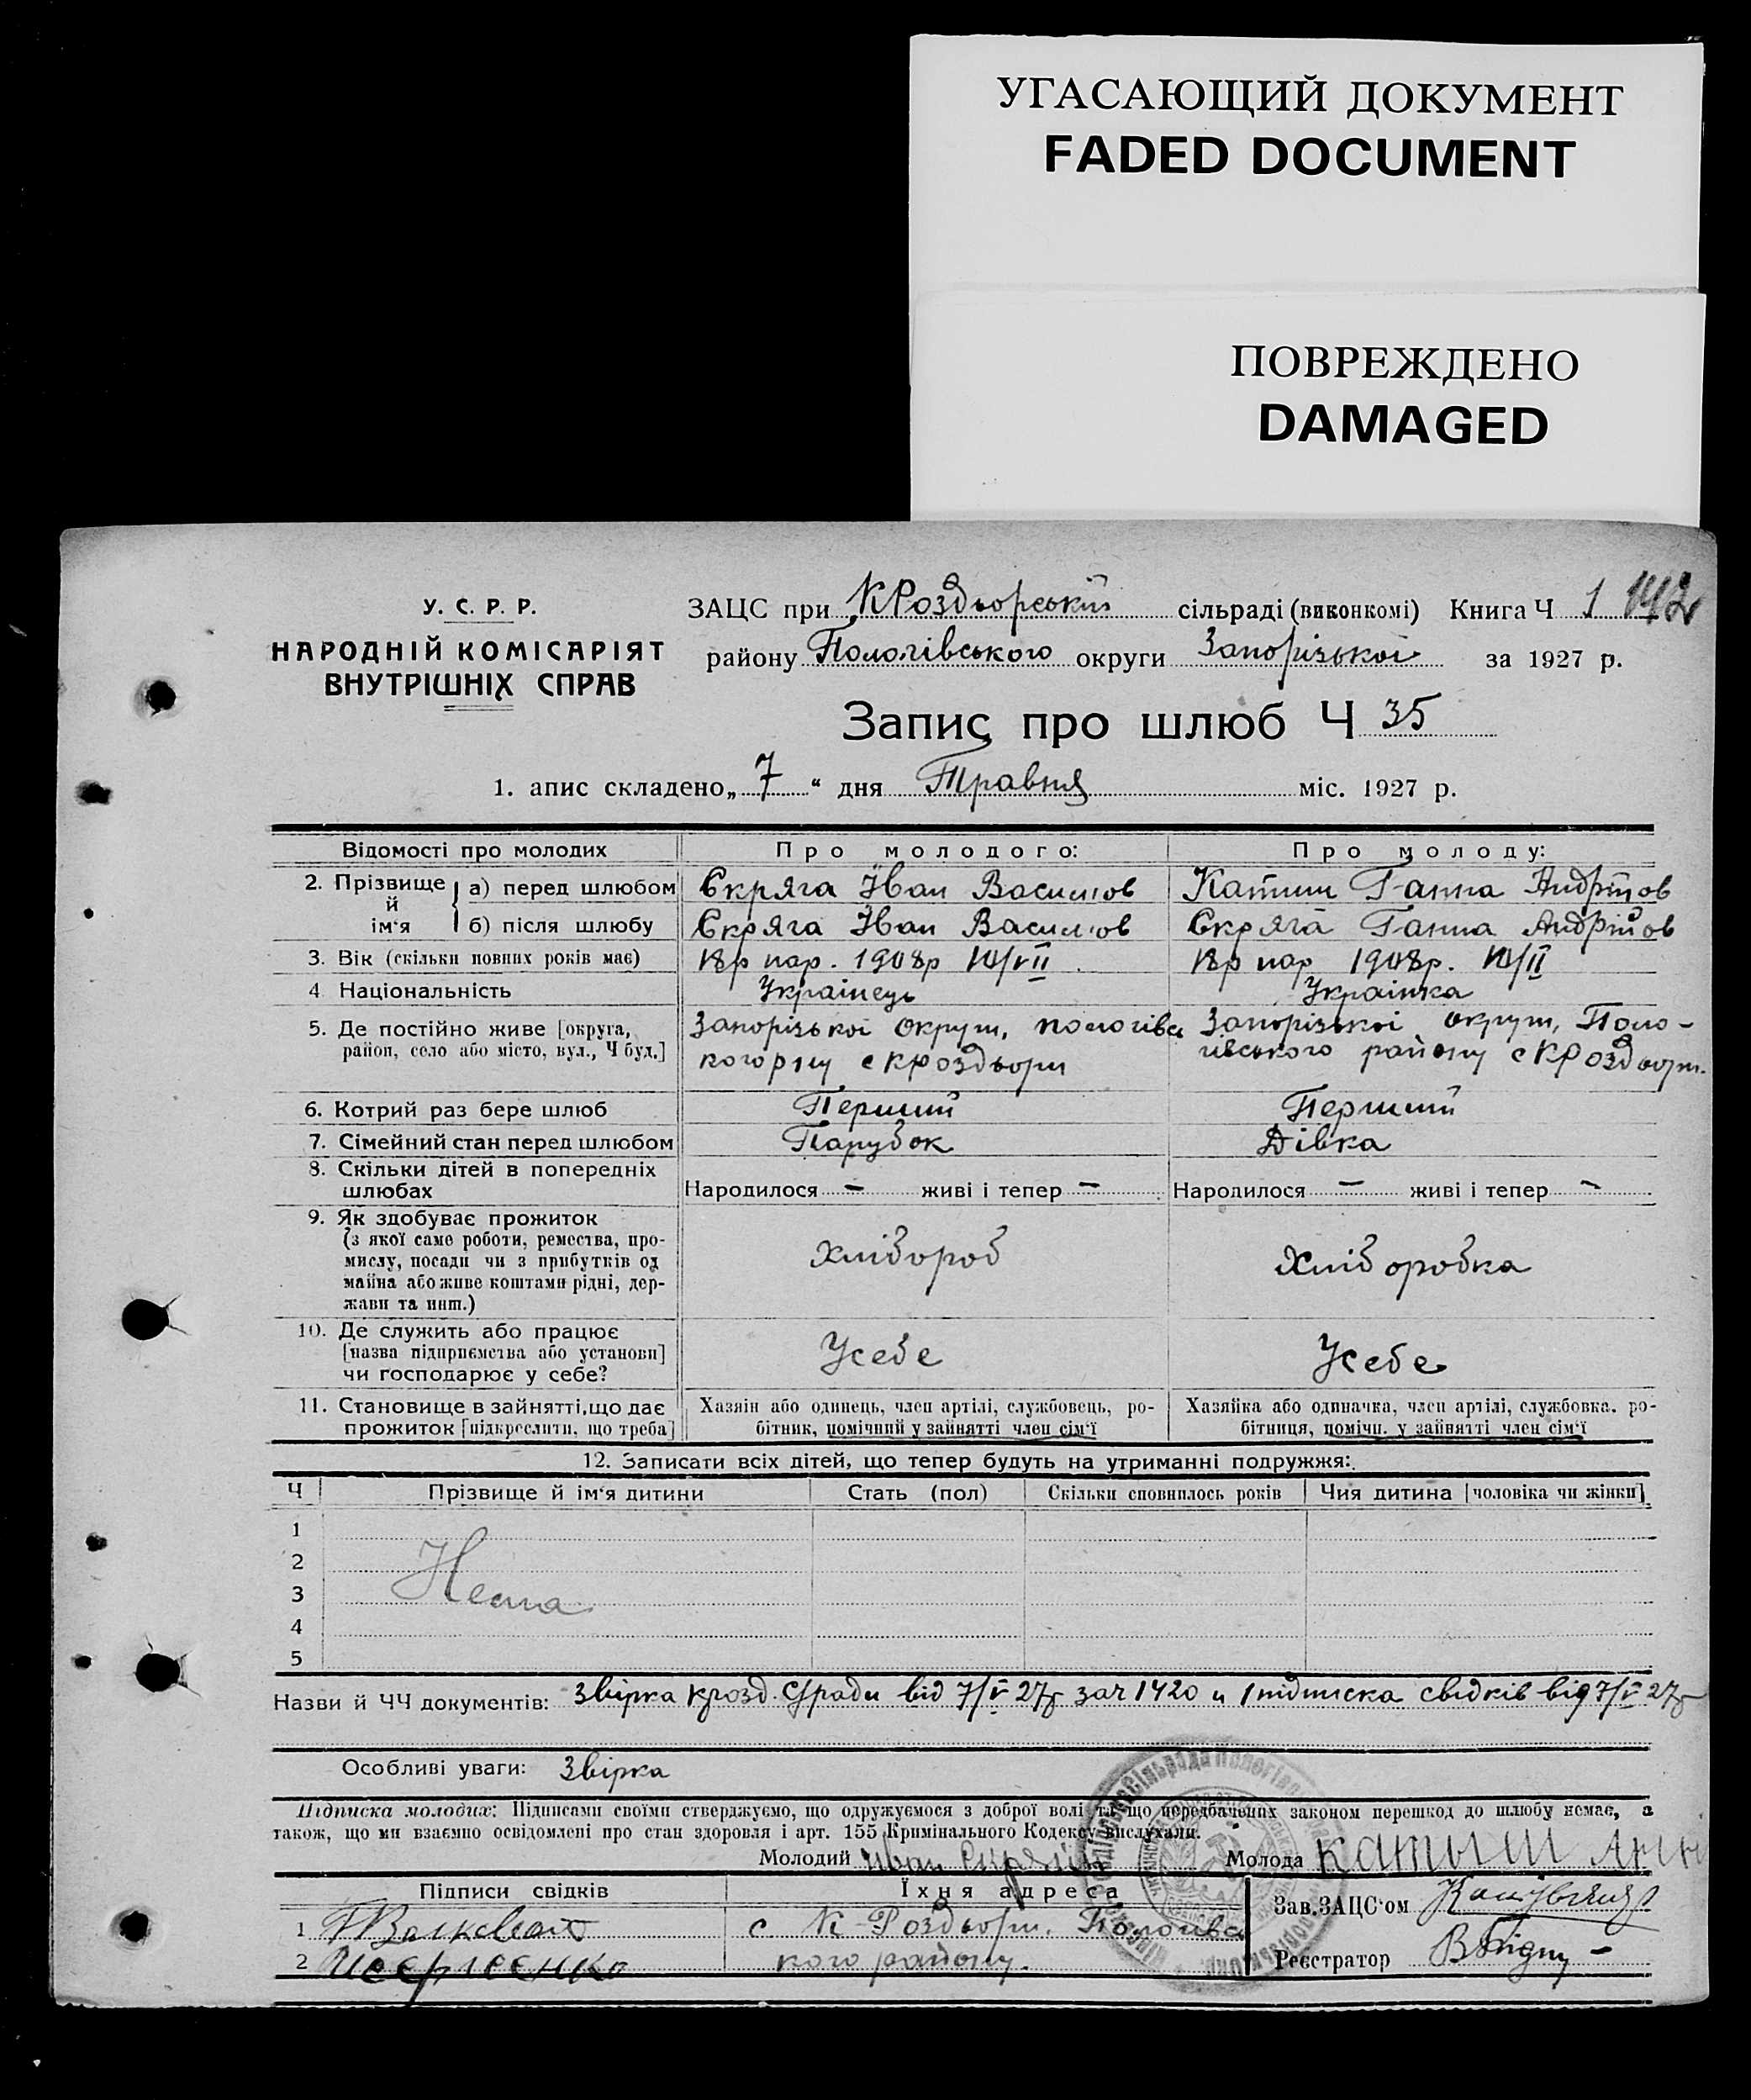 УГАСАЮЩИЙ ДОКУМЕНТ
FADED DOCUMENT
ПОВРЕЖДЕНО
DAMAGED
У. С. Р. Р.
НАРОДНІЙ КОМІСАРІЯТ
ВНУТРІШНІХ СПРАВ
ЗАЦС при КРоздорський сільраді (виконкомі) Книга Ч 1 142
району Пологівського округи Запорізької за 1927 р.
Запис про шлюб Ч 35
1. апис складено „ 7 “ дня Травня міс. 1927 р.
Відомості про молодих Про молодого: Про молоду:
2. Прізвище й ім'я а) перед шлюбом Скряга Іван Васильов Катиш Ганна Андрійов
б) після шлюбу Скряга Іван Васильов Скряга Ганна Андрійов
3. Вік (скільки повних років має) 18р нар. 1908р 10/VII 18р нар 1908р. 10/II
4. Національність Українець Українка
5. Де постійно живе [округа, Запорізької округи, пологівс Запорізької округи, Поло-
район, село або місто, вул., Ч буд.] кого р ну с КРоздори гівського району с КРоздори.
6. Котрий раз бере шлюб Перший Перший
7. Сімейний стан перед шлюбом Парубок Дівка
8. Скільки дітей в попередніх
шлюбах Народилося — живі і тепер — Народилося — живі і тепер —
9. Як здобуває прожиток
(з якої саме роботи, ремества, про-
мислу, посади чи з прибутків од
майна або живе коштами рідні, дер-
жави та инш.) Хлібороб Хліборобка
10. Де служить або працює
[назва підприємства або установи]
чи господарює у себе? Усебе Усебе
11. Становище в зайнятті, що дає Хазяїн або одинець, член артілі, службовець, ро- Хазяйка або одиначка, член артілі, службовка. ро-
прожиток [підкреслити, що треба] бітник, помічний у зайнятті член сім'ї бітниця, помічн. у зайнятті член сім'ї
12. Записати всіх дітей, що тепер будуть на утриманні подружжя:
Ч Прізвище й ім'я дитини Стать (пол) Скільки сповнилось років Чия дитина [чоловіка чи жінки]
1
2
3 Нема
4
5
Назви й ЧЧ документів: Звірка Крозд. С/ради від 7/V 27р за ч 1420 и 1 підписка свідків від 7/V 27р
Особливі уваги: Звірка
Підписка молодих: Підписами своїми стверджуємо, що одружуємося з доброї волі та що передбачених законом перешкод до шлюбу немає, а
також, що ми взаємно освідомлені про стан здоровля і арт. 155 Кримінального Кодексу вислухали.
Молодий Иван Скряга Молода Катыш
Підписи свідків Їхня адреса Зав. ЗАЦС'ом
1 с К-Роздори. Пологівс
2 кого району. Реєстратор